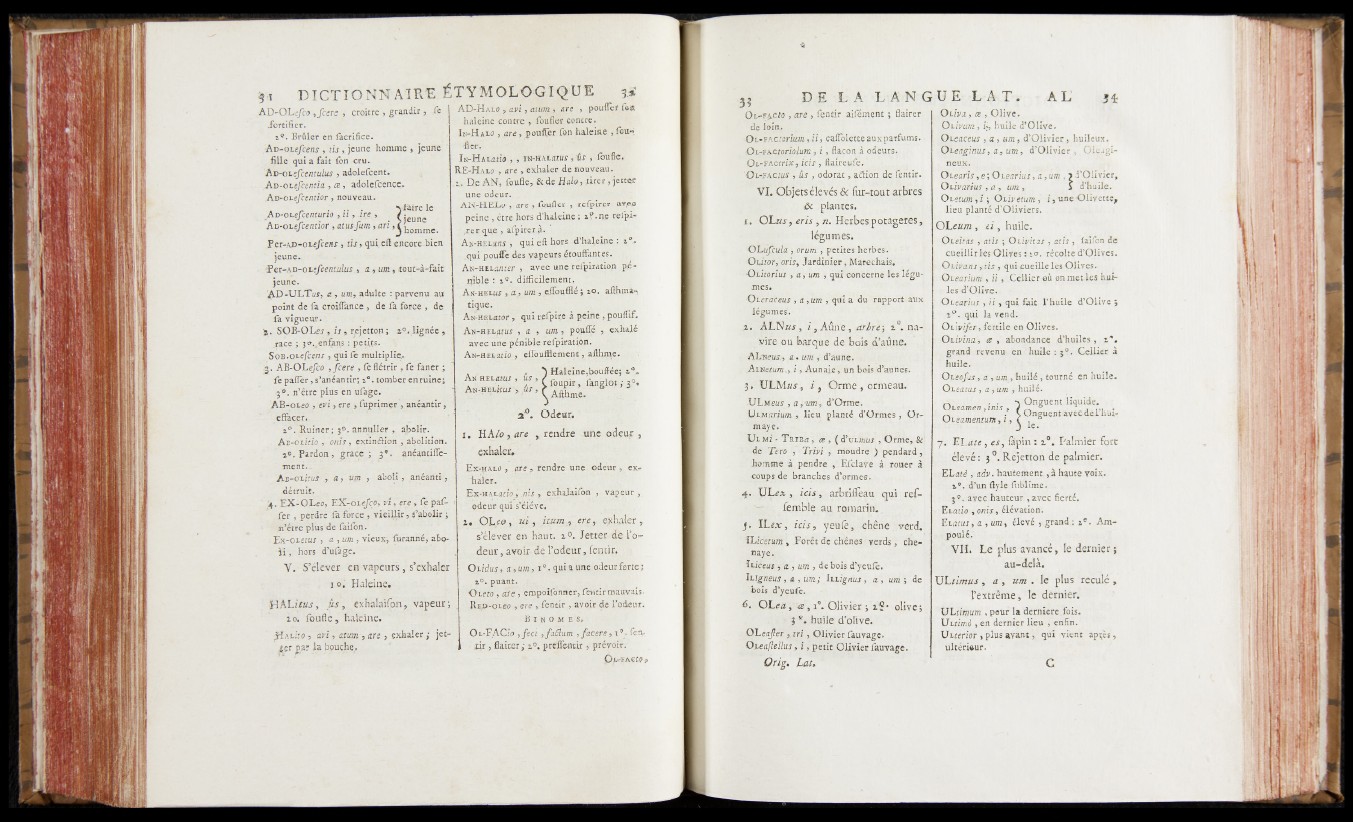 31 DICTIONNAIRE ÉTYMOLOGIQUE 32
AD-OLesco, scere, croitre, grandir, se
fortifier.
2°. Brûler en sacrifice.
AD-OLescens, tis, jeune homme, jeune
fille qui a fait son cru.
AD-OLescentulus, adolescent.
AD-OLescentia, æ, adolescence.
AD-OLescentior, nouveau.
AD-OLescenturio, ii, ire,
AD-OLescentior, atus sum, ari,
} faire le
jeune
homme.
PER-AD-OLescens, tis, qui est encore bien
jeune.
PER-AD-OLescentulus, a, um, tout-à-fait
jeune.
AD-ULTus, a, um, adulte : parvenu au
point de sa croissance, de sa force, de
sa vigueur.
2. SOB-OLes, is, rejetton; 2°. lignée,
race; 3°. enfans : petits.
SOB-OLescens, qui se multiplie.
3. AB-OLesco, scere, se flétrir, se faner;
se passer, s'anéantir; 2°. tomber en ruine;
3°. n'être plus en usage.
AB-OLEO, evi, ere, suprimer, anéantir,
effacer.
2°. Ruiner; 3°. annuller, abolir.
AB-OLITIO, onis, extinction, abolition.
2°. Pardon, grace; 3°. anéantisse-
ment.
AB-OLITUS, a, um, aboli, anéanti,
détruit.
4. EX-OLeo, EX-OLesco, vi, ere, se pas-
ser, perdre sa force, vieillir, s'abolir;
n'être plus de saison.
EX-OLETUS, a, um, vieux, suranné, abo-
li, hors d'usage.
V. S'élever en vapeurs, s'exhaler
1°. Haleine.
HALitus, ûs, exhalaison, vapeur;
2°. souffle, haleine.
HALito, avi, atum, are, exhaler; jet-
ter par la bouche.
AD-HALO, avi, atum, are, pousser son
haleine contre, soufler contre.
IN-HALO, are, pousser son haleine, sou-
fler.
IN-HALatio,, IN-HALatus, ûs, soufle.
RE-HALO, are, exhaler de nouveau.
2. De AN, soufle, & de Halo, tirer, jetter
une odeur.
AN-HELO, are, soufler, respirer avec
peine, être hors d'haleine; 2°. ne respi-
rer que, aspirer à.
AN-HELans, qui est hors d'haleine : 2°.
qui pousse des vapeurs étouffantes.
AN-HELanter, avec une respiration pé-
nible : 2°. difficilement.
AN-HELus, a, um, essoufflé; 2°. asthma-
tique.
AN-HELator, qui respire à peine, poussif.
AN-HELatus, a, um, poussé, exhalé
avec une pénible respiration.
AN-HELatio, essoufflement, asthme.
AN-HELatus, ûs,
AN-HELitus, ûs,
} Haleine, bouffée; 2°.
soupir, sanglot; 3°.
Asthme.
2°. Odeur.
1. HALo, are, rendre une odeur,
exhaler.
EX-HALO, are, rendre une odeur, ex-
haler.
EX-HALatio, nis, exhalaison, vapeur,
odeur qui s'éléve.
2. OLeo, ui, itum, ere, exhaler,
s'élever en haut. 2°. Jetter de l'o-
deur, avoir de l'odeur, sentir.
OLidus, a, um, 1°. qui a une odeur forte;
2°. puant.
OLeto, are, empoisonner, sentir mauvais.
RED-OLeo, ere, sentir, avoir de l'odeur.
BINOMES.
OL-FACio, feci, factum, facere, 1°. sen-
tir, flairer; 2°. pressentir, prévoir.
OL-FACTO,
33 DE LA LANGUE LAT. AL 34
OL-FACto, are, sentir aisément; flairer
de loin.
OL-FACtorium, ii, cassolette aux parfums.
OL-FACtoriolum, i, flacon à odeurs.
OL-FACtrix, icis, flaireuse.
OL-FACtus, ûs, odorat, action de sentir.
VI. Objets élevés & sur-tout arbres
& plantes.
1. OLus, eris, n. Herbes potageres,
légumes.
OLuscula, orum, petites herbes.
OLitor, oris, Jardinier, Marechais.
OLitorius, a, um, qui concerne les légu-
mes.
OLeraceus, a, um, qui a du rapport aux
légumes.
2. ALNus, i, Aûne, arbre; 2°. na-
vire ou barque de bois d'aûne.
ALneus, a, um, d'aune.
ALnetum, i, Aunaie, un bois d'aunes.
3. ULMus, i, Orme, ormeau.
ULMeus, a, um, d'Orme.
ULMarium, lieu planté d'Ormes, Or-
maye.
ULMI-TRIBA, æ, (d'ULMus, Orme, &
de Tero, Trivi, moudre) pendard,
homme à pendre, Esclave à rouer à
coups de branches d'ormes.
4. ULex, icis, arbrisseau qui res-
semble au romarin.
5. ILex, icis, yeuse, chêne verd.
ILicetum, Forêt de chênes verds, che-
naye.
ILiceus, a, um, de bois d'yeuse.
ILigneus, a, um; ILLignus, a, um; de
bois d'yeuse.
6. OLea, æ, 1°. Olivier; 2°. olive;
3°. huile d'olive.
OLeaster, tri, Olivier sauvage.
OLeastellus, i, petit Olivier sauvage.
Orig. Lat.
OLiva, æ, Olive.
OLivum, i, huile d'Olive.
OLeaceus, a, um, d'Olivier, huileux.
OLeaginus, a, um, d'Olivier, Oleagi-
neux.
OLearis, e; OLearius, a, um,
OLivarius, a, um,
} d'Olivier,
d'huile.
OLetum, i; OLivetum, i, une Olivette,
lieu planté d'Oliviers.
OLeum, ei, huile.
OLeitas, atis; OLivitas, atis, saison de
cueillir les Olives: 2°. récolte d'Olives.
OLivans, tis, qui cueille les Olives.
OLearium, ii, Cellier où on met les hui-
les d'Olive.
OLearius, ii, qui fait l'huile d'Olive;
2°. qui la vend.
OLivifer, fertile en Olives.
OLivina, æ, abondance d'huiles, 2°.
grand revenu en huile : 3°. Cellier à
huile.
OLeosus, a, um, huilé, tourné en huile.
OLeatus, a, um, huilé.
OLeamen, inis,
OLeamentum, i,
} Onguent liquide.
Onguent avec de l'hui-
le.
7. ELate, es, sapin : 2°. Palmier fort
élevé: 3°. Rejetton de palmier.
ELaté, adv. hautement, à haute voix.
2°. d'un style sublime.
3°. avec hauteur, avec fierté.
ELatio, onis, élévation.
ELatus, a, um, élevé, grand : 2°. Am-
poulé.
VII. Le plus avancé, le dernier;
au-delà.
ULtimus, a, um. le plus reculé,
l'extrême, le dernier.
ULtimum, pour la derniere fois.
ULtimò, en dernier lieu, enfin.
ULterior, plus avant, qui vient après,
ultérieur.
C